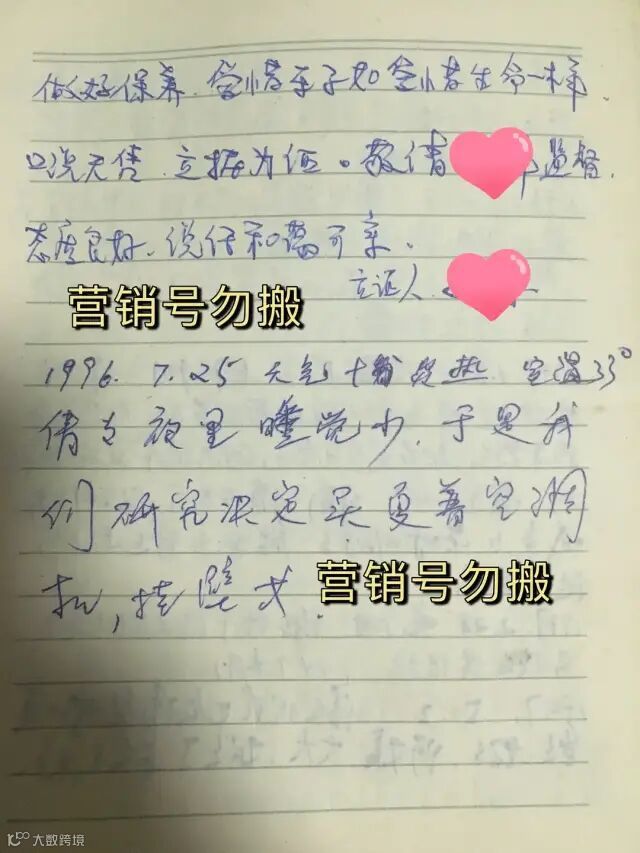 做好保养.爱惜车子如爱惜生命一样.
口说无凭.立据为证。敬请 监督.
态度良好.说话和蔼可亲.
立证人.
营销号勿搬
1996. 7. 25 天气十分炎热.室温33°
倩女夜里睡觉少.于是我
们研究决定买夏普空调
机,挂壁式.
营销号勿搬
大数跨境